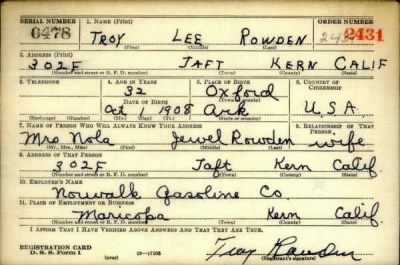 SERIAL NUMBER 1. NAME (Print) ORDER NUMBER
0478 TROY LEE ROWDEN 2431
(First) (Middle) (Last)
2. ADDRESS (Print)
302F TAFT KERN CALIF
(Number and street or R. F. D. number) (Town) (County) (State)
3. TELEPHONE 4. AGE IN YEARS 5. PLACE OF BIRTH 6. COUNTRY OF CITIZENSHIP
32 Oxford
DATE OF BIRTH (Town or county)
Oct 1 1908 Ark U.S.A.
(Exchange) (Number) (Mo.) (Day) (Yr.) (State or country)
7. NAME OF PERSON WHO WILL ALWAYS KNOW YOUR ADDRESS 8. RELATIONSHIP OF THAT PERSON
Mrs Nola Jewel Rowden wife
(Mr., Mrs., Miss) (First) (Middle) (Last)
9. ADDRESS OF THAT PERSON
302F Taft Kern Calif
(Number and street or R. F. D. number) (Town) (County) (State)
10. EMPLOYER'S NAME
Norwalk Gasoline Co.
11. PLACE OF EMPLOYMENT OR BUSINESS
Maricopa Kern Calif.
(Number and street or R. F. D. number) (Town) (County) (State)
I AFFIRM THAT I HAVE VERIFIED ABOVE ANSWERS AND THAT THEY ARE TRUE.
REGISTRATION CARD
D. S. S. Form 1 (over) Troy Rowden
(Registrant's signature)